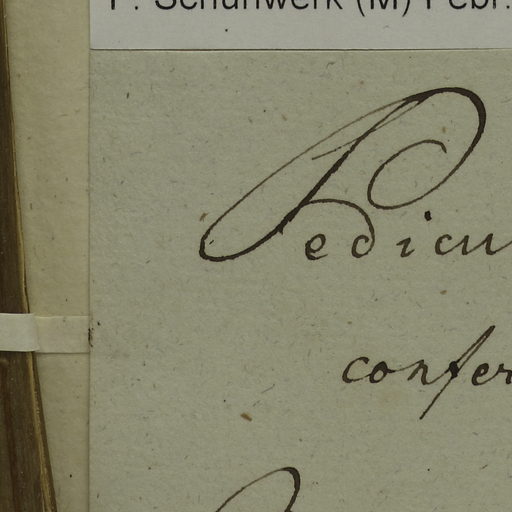 F. Schuhwerk (M) Febr.
Pedicu
confer